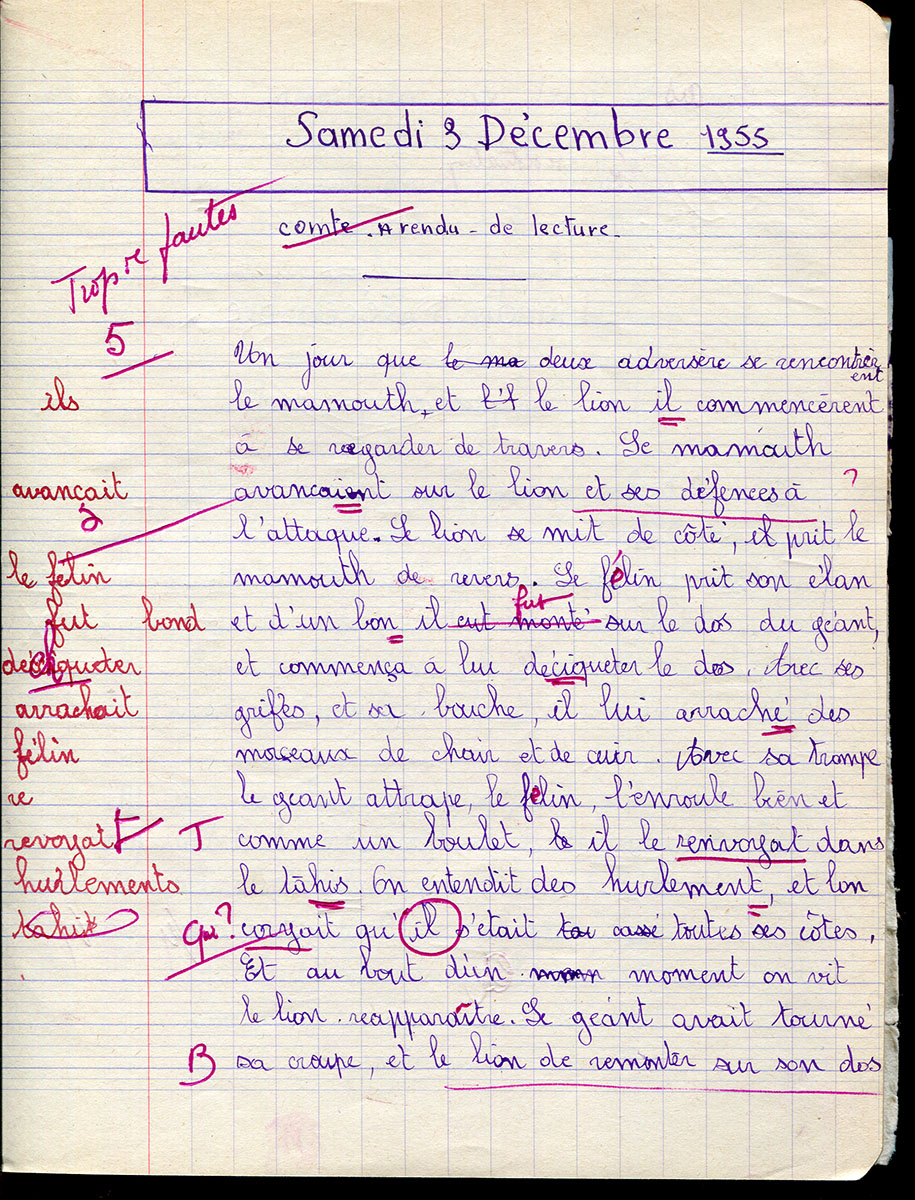 Samedi 3 Décembre 1955
comte. A rendu - de lecture.
Trop re fautes
5
Un jour que le ma deux adversère se rencontrèr
ent
ils
le mamouth, et le lion il commencèrent
à se regarder de travers. Le mamouth
avancait
avancaient sur le lion et ses défences à ?
l'attaque. Le lion se mit de côté, il prit le
le félin
mamouth de revers. Le félin prit son élan
fut bond
et d'un bon il eut monté fut sur le dos du géant,
déchiqueter
et commença à lui déciqueter le dos. Avec ses
arrachait
griffes, et sa bouche, il lui arraché des
félin
morceaux de chair et de cuir. Avec sa trompe
re
le géant attrape, le félin, l'enroule bien et
revoyait T
comme un boulet, il le renvoyat dans
hurlements
le tâhis. On entendit des hurlement, et lon
tahis
Qui? croyait qu'il s'était cassé toutes ses côtes,
Et au bout d'un moment on vit
le lion réapparaître. Le géant avait tourné
B sa croupe, et le lion de remonter sur son dos